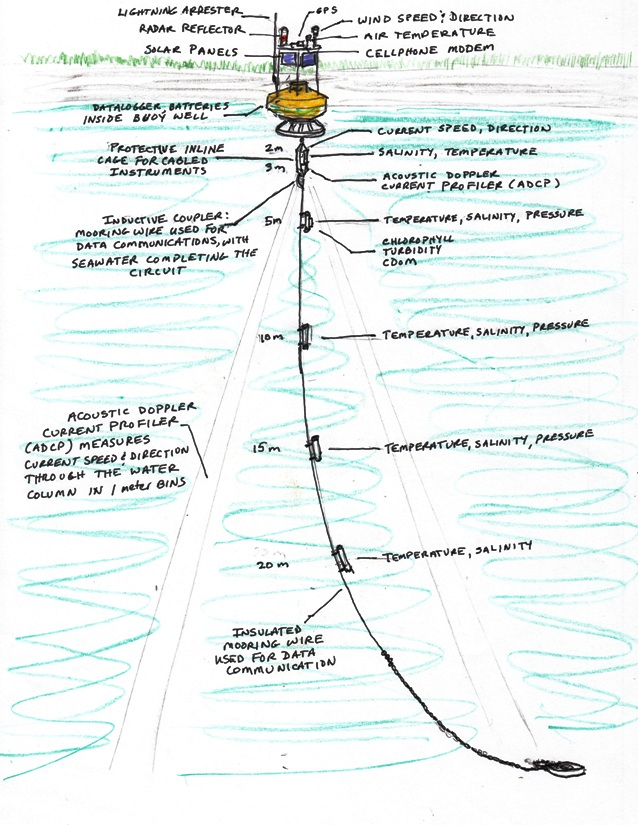 LIGHTNING ARRESTER
GPS
RADAR REFLECTOR
WIND SPEED & DIRECTION
AIR TEMPERATURE
SOLAR PANELS
CELLPHONE MODEM
DATALOGGER, BATTERIES
INSIDE BUOY WELL
CURRENT SPEED, DIRECTION
PROTECTIVE INLINE
CAGE FOR CABLED
INSTRUMENTS
2m
SALINITY, TEMPERATURE
3m
ACOUSTIC DOPPLER
CURRENT PROFILER (ADCP)
INDUCTIVE COUPLER:
MOORING WIRE USED FOR
DATA COMMUNICATIONS, WITH
SEAWATER COMPLETING THE
CIRCUIT
5m
TEMPERATURE, SALINITY, PRESSURE
CHLOROPHYLL
TURBIDITY
CDOM
10m
TEMPERATURE, SALINITY, PRESSURE
ACOUSTIC DOPPLER
CURRENT PROFILER
(ADCP) MEASURES
CURRENT SPEED & DIRECTION
THROUGH THE WATER
COLUMN IN 1 meter BINS
15m
TEMPERATURE, SALINITY, PRESSURE
20 m
TEMPERATURE, SALINITY
INSULATED
MOORING WIRE
USED FOR DATA
COMMUNICATION